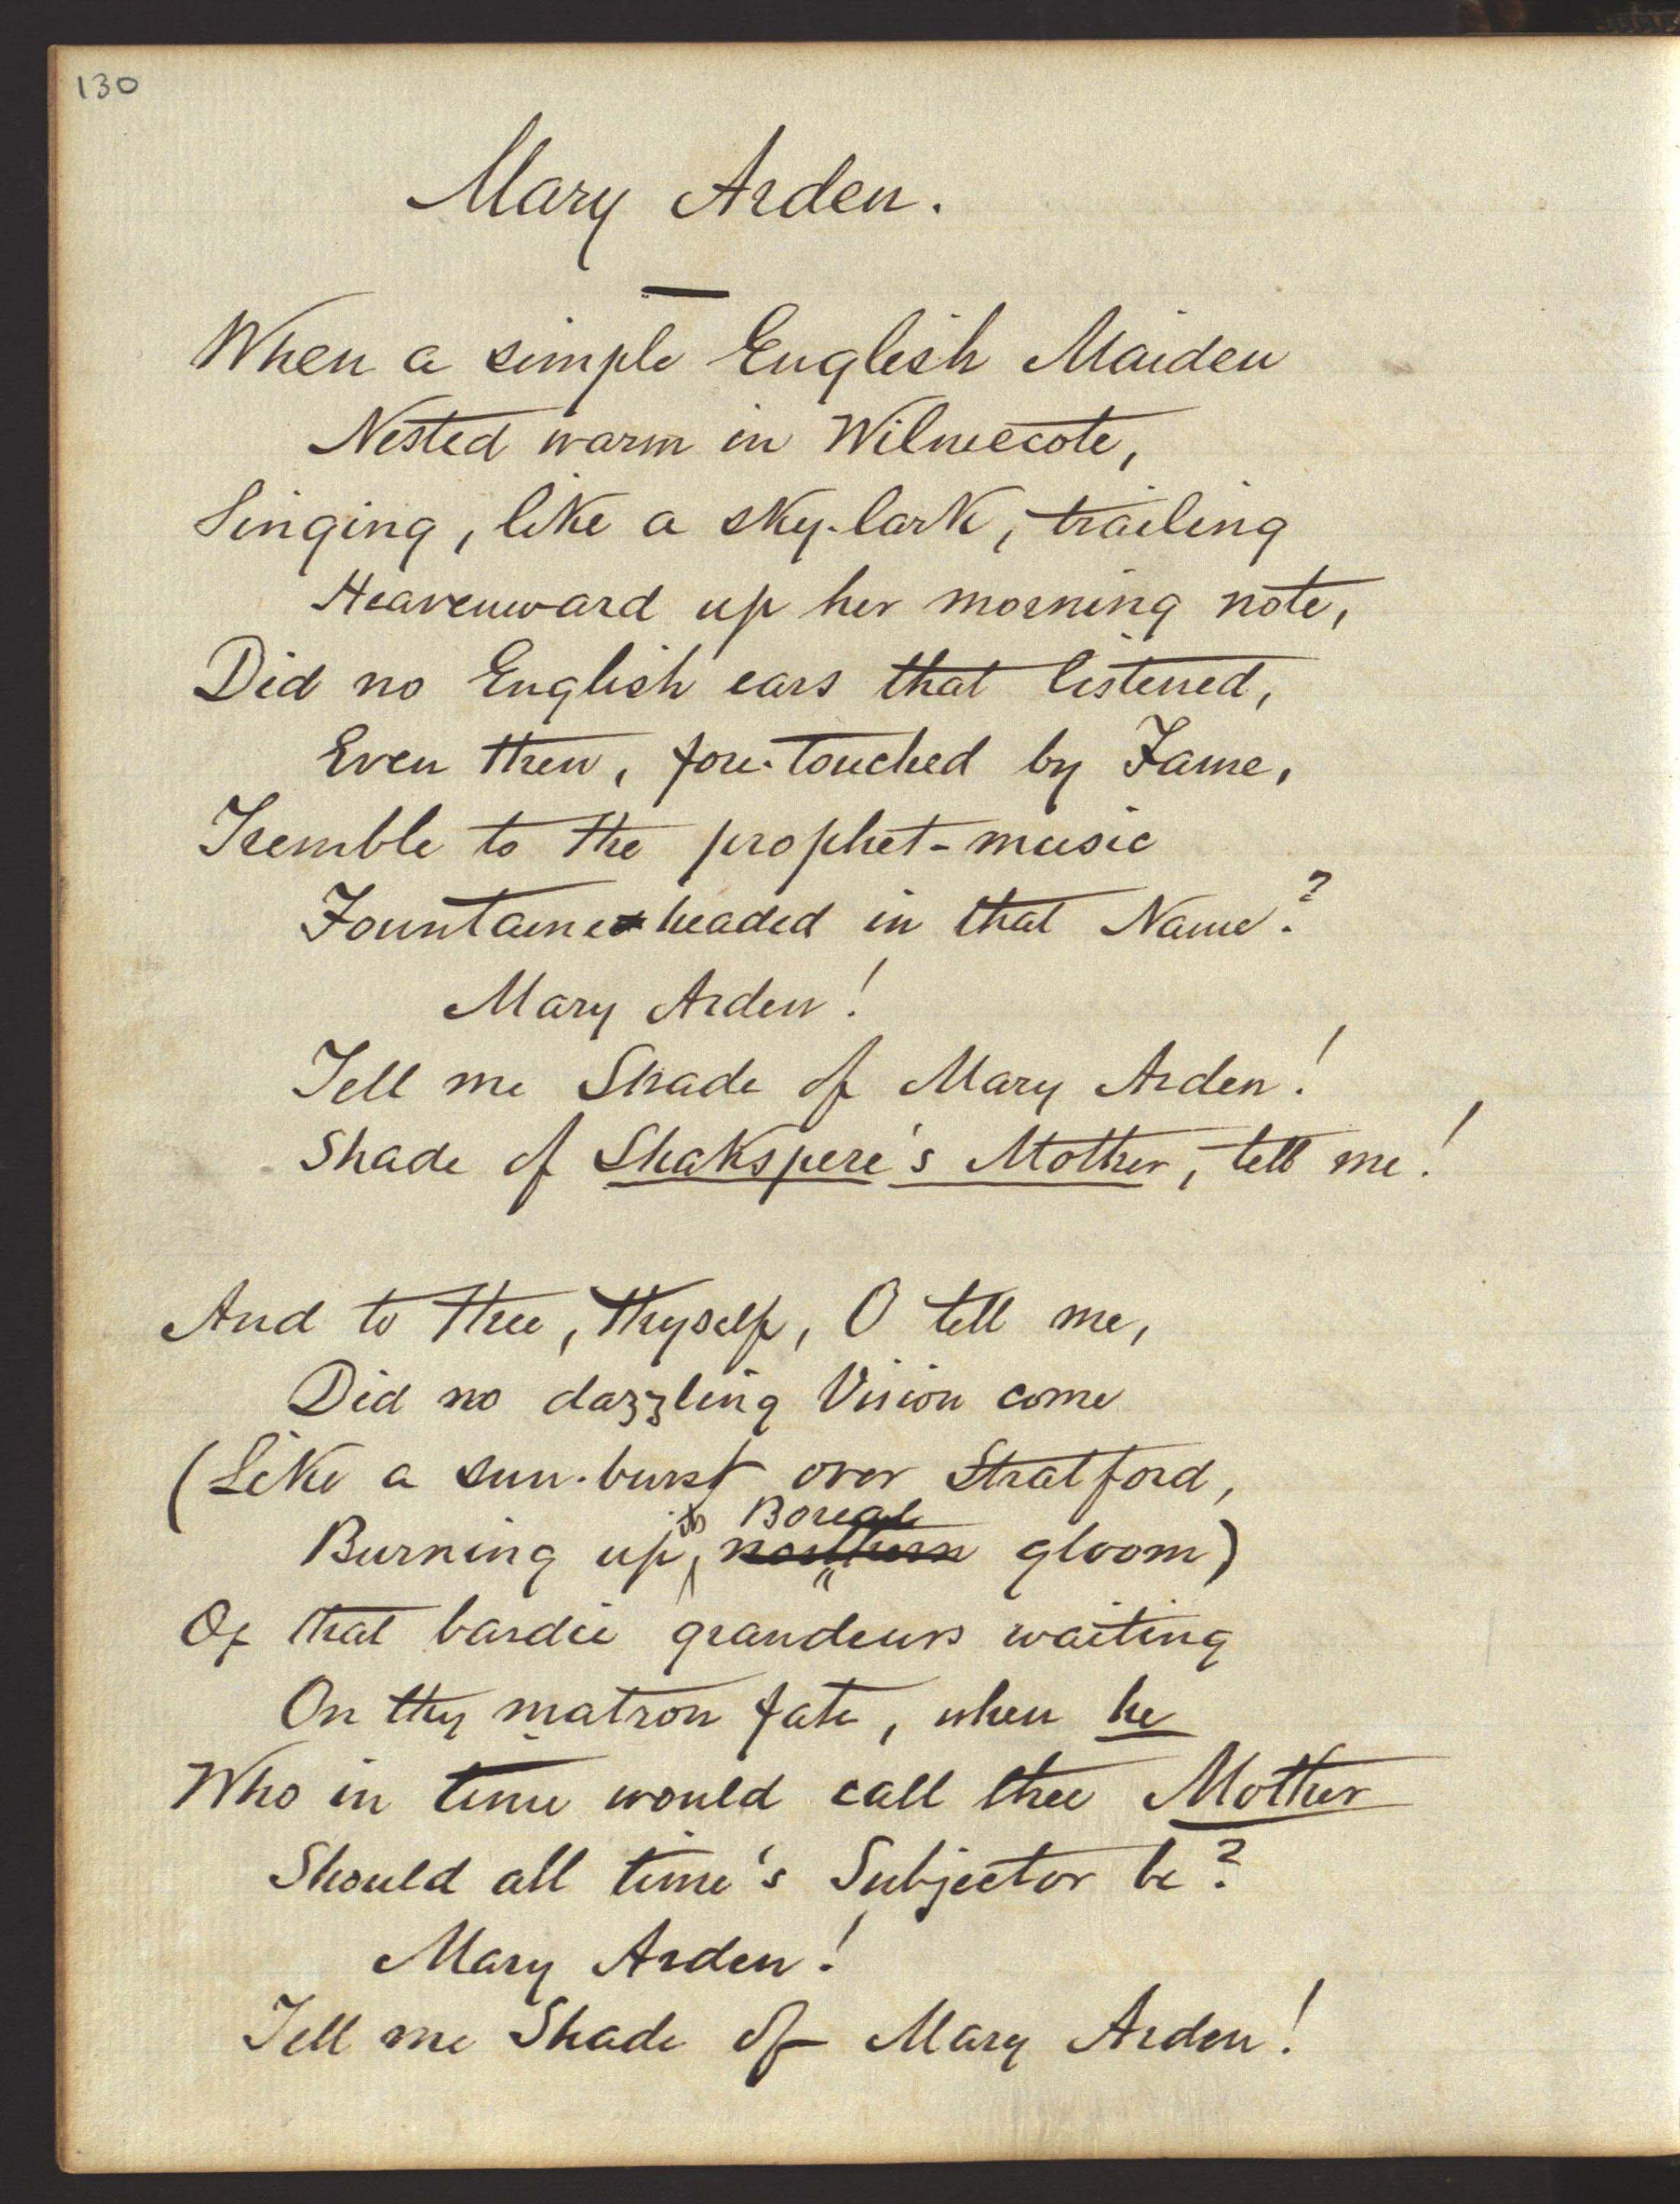 130
Mary Arden.
When a simple English Maiden
Nested warm in Wilmecote,
Singing, like a sky-lark, trailing
Heavenward up her morning note,
Did no English ears that listened,
Even then, fore-touched by Fame,
Tremble to the prophet-music
Fountain-headed in that Name?
Mary Arden!
Tell me Shade of Mary Arden!
Shade of Shakspere's Mother, tell me!
And to thee, thyself, O tell me,
Did no dazzling Vision come
(Like a sun-burst over Stratford,
its Boreal
Burning up northern gloom)
Of that bardic grandeurs waiting
On thy matron fate, when he
Who in time would call thee Mother
Should all time's Subjector be?
Mary Arden!
Tell me Shade of Mary Arden!